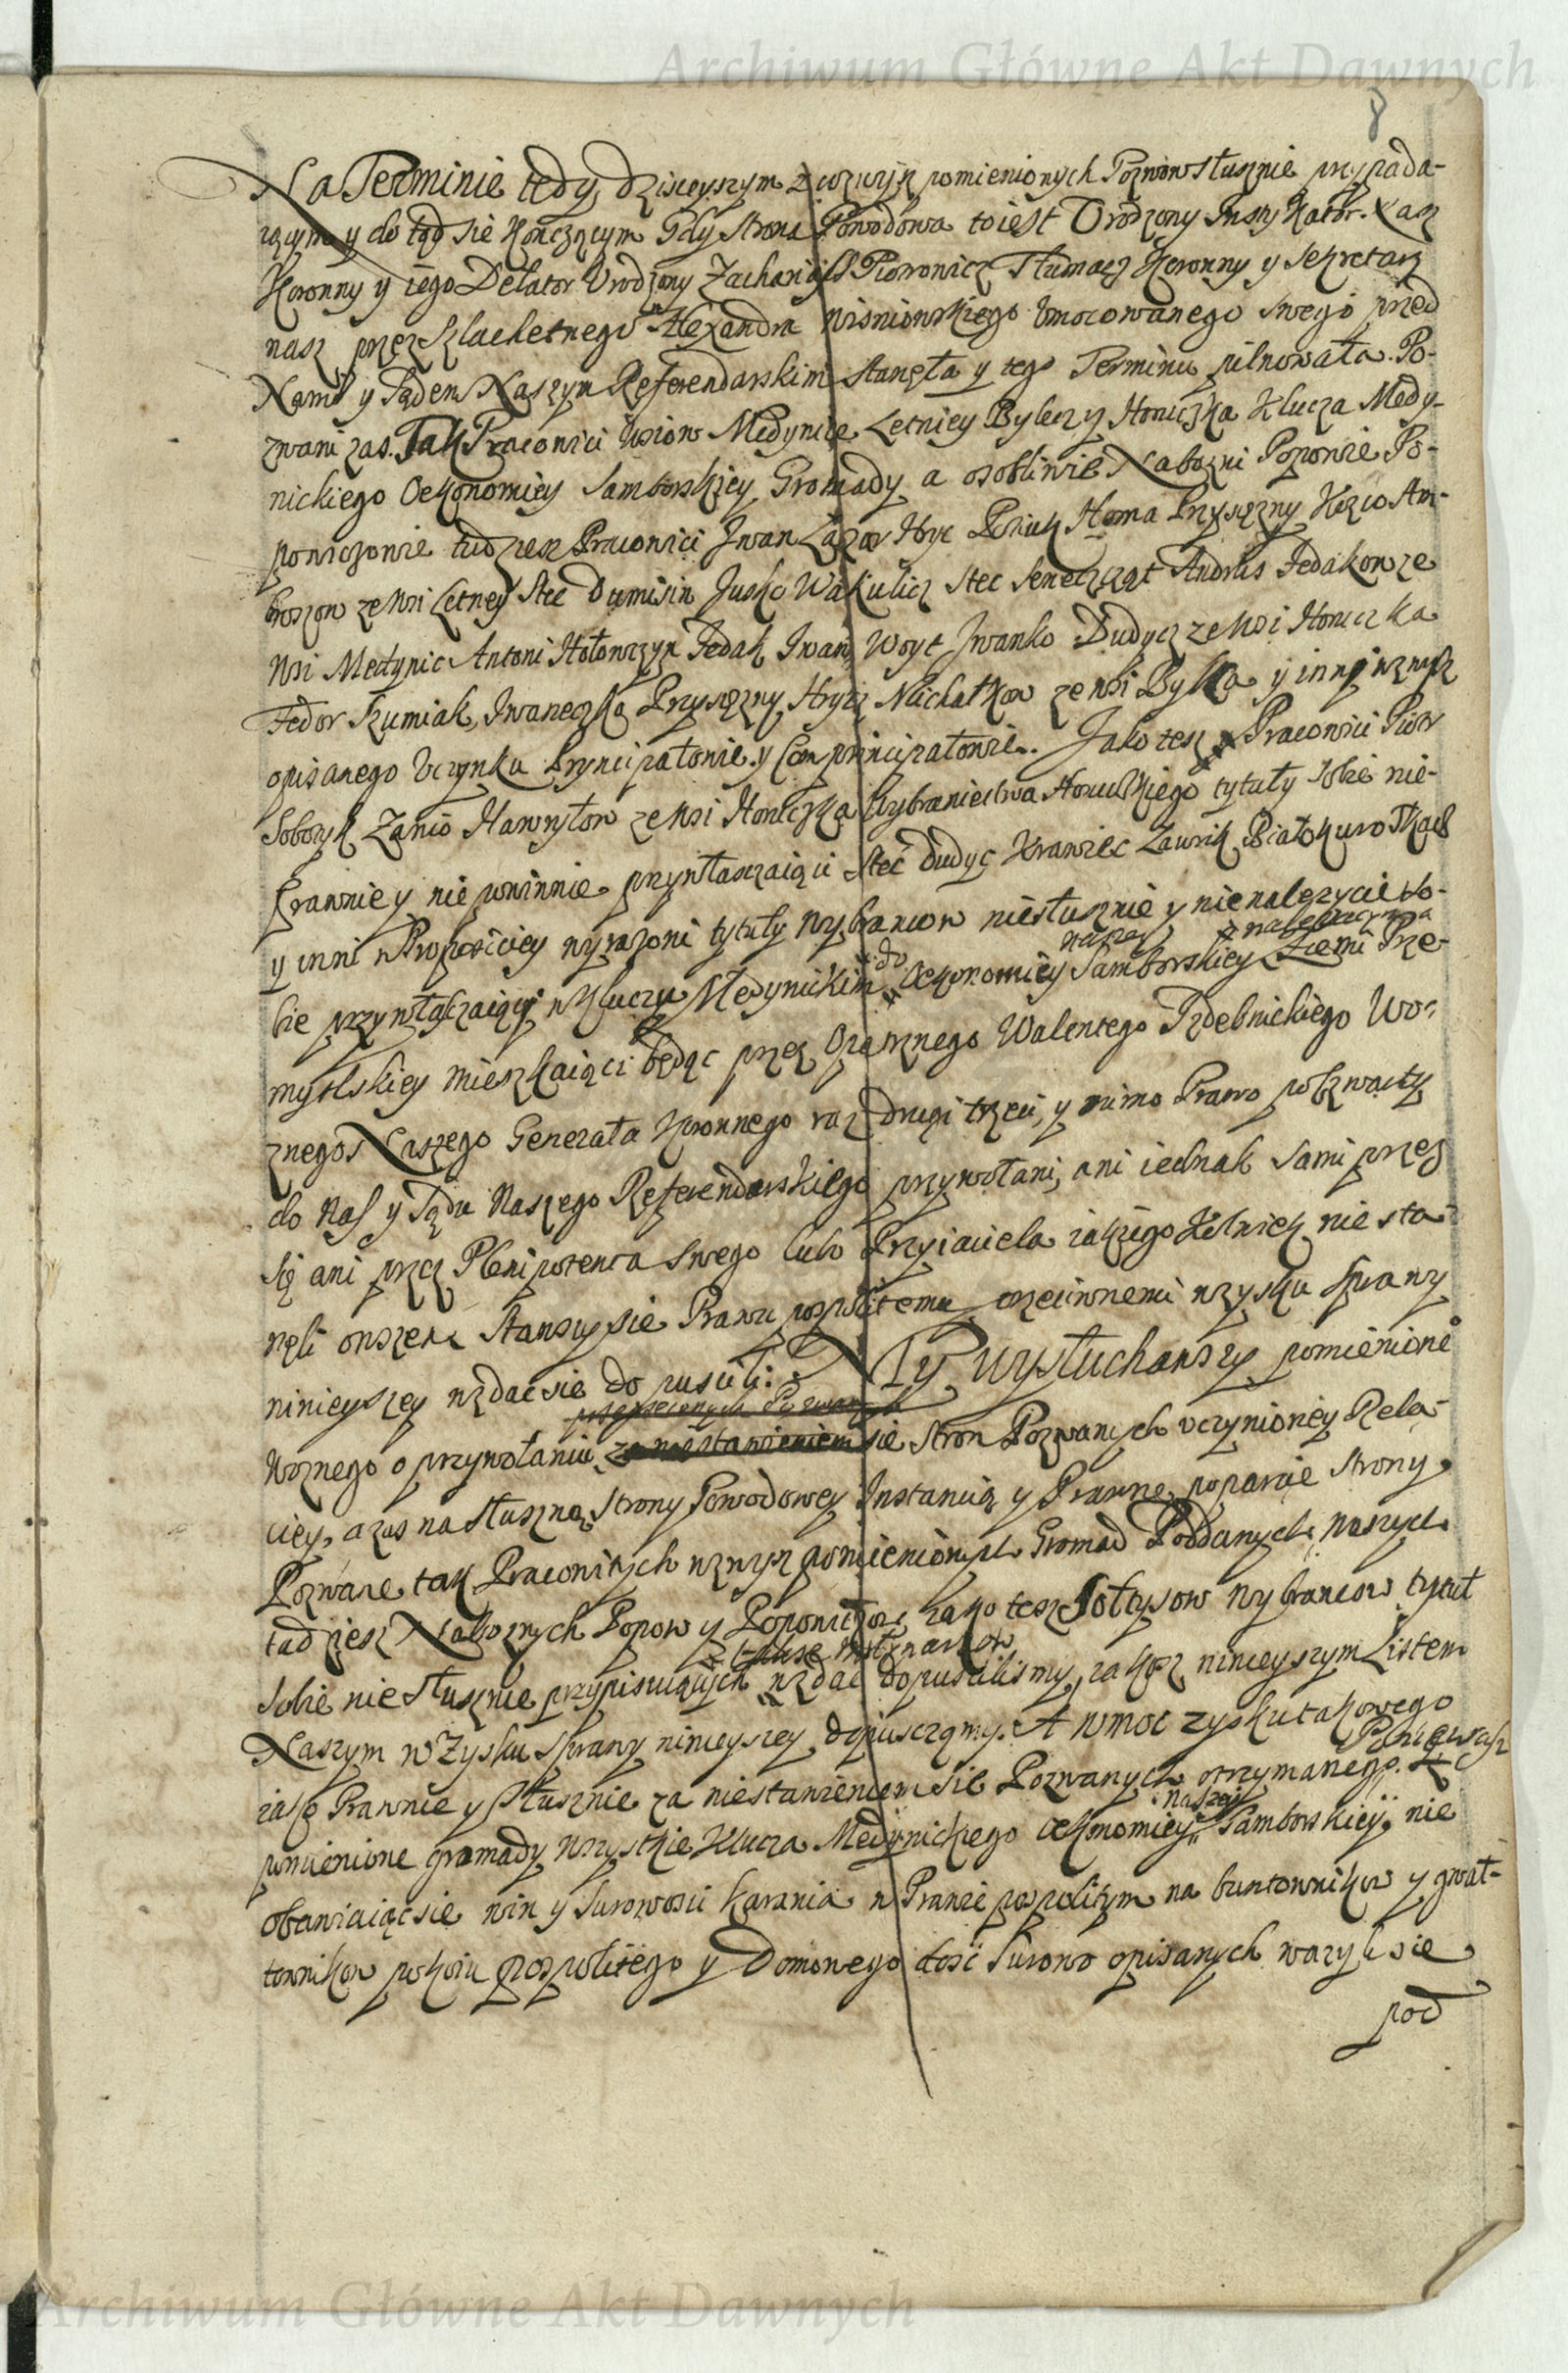 Archiwum Główne Akt Dawnych
8
Na Terminie tedy dzisieyszym z wzwyż pomienionych Pozwow słusznie przypada-
iącym y do tąd sie kończącym Gdy Strona Powodowa to iest Urodzony Insty
Koronny y iego Delator Urodzony Zachariasz Piotrowicz Tłumacz Koronny y Sekretarz
nasz przez Szlachetnego Alexandra Wisniowskiego Umocowanego swego przed
Nami y Sądem Naszym Referendarskim Stanęła y tego Terminu pilnowała. Po-
zwani zas Tak Pracowici Wsiow Medynice Letniey Bylicz y Horuczka Klucza Medy-
nickiego Oekonomiey Samborskiey Gromady a osobliwie Nabozni Popowie Po-
powiczowie tudziesz Pracowici Iwan Lazor Hryc Homa Przysęzny Am-
broszow ze Wsi Letney Stec Dumisin Jusko Wakulicz Stec Andrus Fedakow ze
Wsi Medynic Antoni Hołowczyn Fedak Iwan Woyt Iwanko Dudycz ze Wsi Horuczka
Fedor Szumiak, Iwaneczko Przysęzny Hryc ze Wsi Byłka y inni wzwysz
opisanego Uczynku Pryncipałowie y Comprincipałowie. Jako tesz Pracowici Piotr
Soboryk Zanio Hawryłow ze Wsi Horuczka Wybraniectwa Horuckiego tytuły sobie nie-
prawnie y niewinnie przywłaszczaiący Stec Dudyc Krawiec Ławrik Białokur Tkacz
y inni w Propozyciey wyrazoni tytuły wybrancow niesłusznie y nienalezycie so-
naszey
bie przywłaszczaiący w Kluczu Medynickim do Oekonomiey Samborskiey Ziemi Prze-
myslskiey mieszkaiący będąc przez Opatrznego Walentego Trzebnickiego Wo-
znego Naszego Generała Koronnego raz drugi trzeci, y mimo Prawo poczwarty
do Nas y Sądu Naszego Referendarskiego przywołani, ani iednak sami przez
się ani przez Plenipotenta swego lubo Przyiaciela iakiego Kolwiek nie sta-
nęli owszem Stawszy sie Prawu pospolitemu przeciwnemi wzysku sprawy
ninieyszey wzdac sie do puscili: My wysłuchawszy pomienione°
Woznego o przywołaniu za niestawieniem sie Stron Pozwanych uczynioney Rela-
ciey, a zas na słuszną Strony Powodowey Instancią y Prawne poparcie Strony
Pozwane tak Pracowitych wzwysz pomienionych Gromad Poddanych naszych
tudziesz Naboznych Popow y Popowiczow iako tesz Sołtysow Wybrancow tytuł
sobie niesłusznie przypisuiących wzdac dopuscilismy, iakosz ninieyszym Listem
Naszym w Zysku Sprawy ninieyszey dopusczamy. A wmoc zysku takowego
Poniewasz
iako Prawnie y słusznie za niestawieniem sie Pozwanych otrzymanego.
naszey
pomienione gromady wszystkie Klucza Medynickiego Oekonomiey Samborskiey, nie
obawiaiąc sie win y surowosci karania w Prawie pospolitym na buntownikow y gwał-
townikow pokoiu pospolitego y Domowego dosc surowo opisanych wazyli sie
pod
Archiwum Główne Akt Dawnych